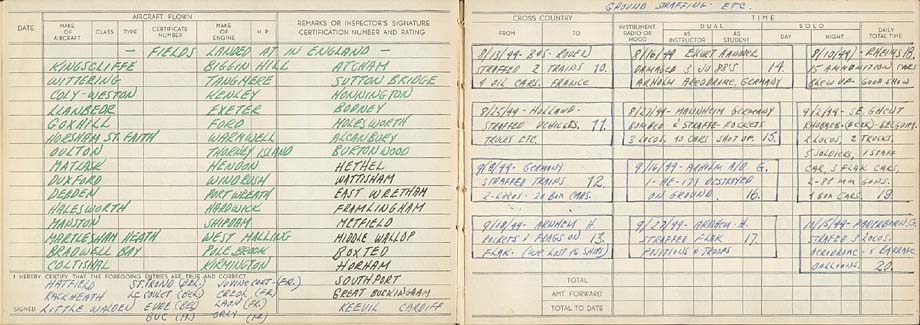 AIRCRAFT FLOWN
DATE MAKE OF AIRCRAFT CLASS TYPE CERTIFICATE NUMBER MAKE OF ENGINE H P REMARKS OR INSPECTOR'S SIGNATURE CERTIFICATION NUMBER AND RATING
— FIELDS LANDED AT IN ENGLAND —
KINGSCLIFFE BIGGIN HILL ATCHAM
WITTERING TANGMERE SUTTON BRIDGE
COLY-WESTON KENLEY HONNINGTON
LLANBEDR EXETER BODNEY
GOXHILL FORD MOLESWORTH
HORSHAM ST. FAITH WARMWELL ALCONBURY
OULTON THORNEY ISLAND BURTONWOOD
MATLASK HENDON HETHEL
DUXFORD WINDRUSH WATTISHAM
DEBDEN PORT WREATH EAST WRETHAM
HALESWORTH HARDWICK FRAMLINGHAM
MANSTON SHIPDAM METFIELD
MARTLESHAM HEATH WEST MALLING MIDDLE WALLOP
BRADWELL BAY POLEBROOK BOXTED
COLTISHAL KIRMINGTON HORHAM
I HEREBY CERTIFY THAT THE FOREGOING ENTRIES ARE TRUE AND CORRECT
HATFIELD ST. TROND (BEL.) (FR.) SOUTHPORT
RACKHEATH LE CULOT (BEL) CREIL (FR.) GREAT BUCKINGHAM
SIGNED LITTLE WALDEN EVRE (BEL) LAON (FR.) KEEVIL CARDIFF
BUC (FR) ORLY (FR)
GROUND STRAFFING ETC.
CROSS COUNTRY TIME
FROM TO INSTRUMENT RADIO OR HOOD DUAL AS INSTRUCTOR AS STUDENT DAY SOLO NIGHT DAILY TOTAL TIME
8/13/44 - - ROUEN
STRAFFED 2 TRAINS 10.
9 OIL CARS. FRANCE
8/16/44 ESCORT
DAMAGED 3 JU 88'S 14.
ARHOLM AERODROME, GERMANY
9/10/44 - RHEIMS 18.
15 AMMUNITION CARS
BLEW UP - GOOD SHOW
8/25/44 - HOLLAND.
STRAFFED VEHICLES. 11.
TRUCKS ETC.
8/27/44 - MANNHEIM GERMANY
BOMBED & STRAFFE - ROCKETS
3 LOCOS. 40 CARS SHOT UP. 15.
9/2/44 - SE. GHENT
- BELGIUM.
2 LOCOS, 2 TRUCKS,
5 SOLDIERS, 1 STAFF
CAR, 3 FLAK CARS,
2 - 88 MM GUNS.
4 BOX CARS. 19.
9/8/44 - GERMANY
STRAFFED TRAINS 12.
2 - LOCOS - 20 BOX CARS.
9/16/44 - A/D G.
1 - HE - 177 DESTROYED
ON GROUND. 16.
9/18/44 - ARNHEM H
ROCKETS & FRAGS ON 13.
FLAK - (WE LOST 16 SHIPS)
9/23/44 - ARNHEM - H.
STRAFFED FLAK 17.
POSITIONS & TROOPS
PADERBORN G.
STRAFED 3 LOCOS.
AERODROME - 1 BARRAGE
BALLOONS. 20.
TOTAL
AMT. FORWARD
TOTAL TO DATE